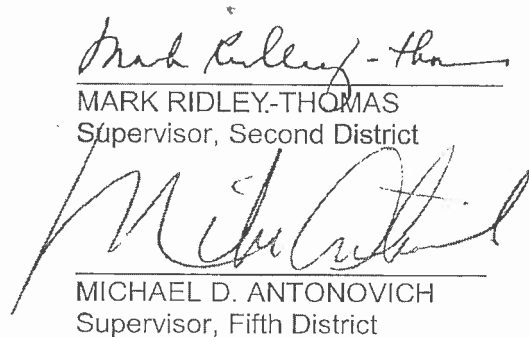 Mark Ridley-Thomas
MARK RIDLEY-THOMAS
Supervisor, Second District
Mike Antonovich
MICHAEL D. ANTONOVICH
Supervisor, Fifth District